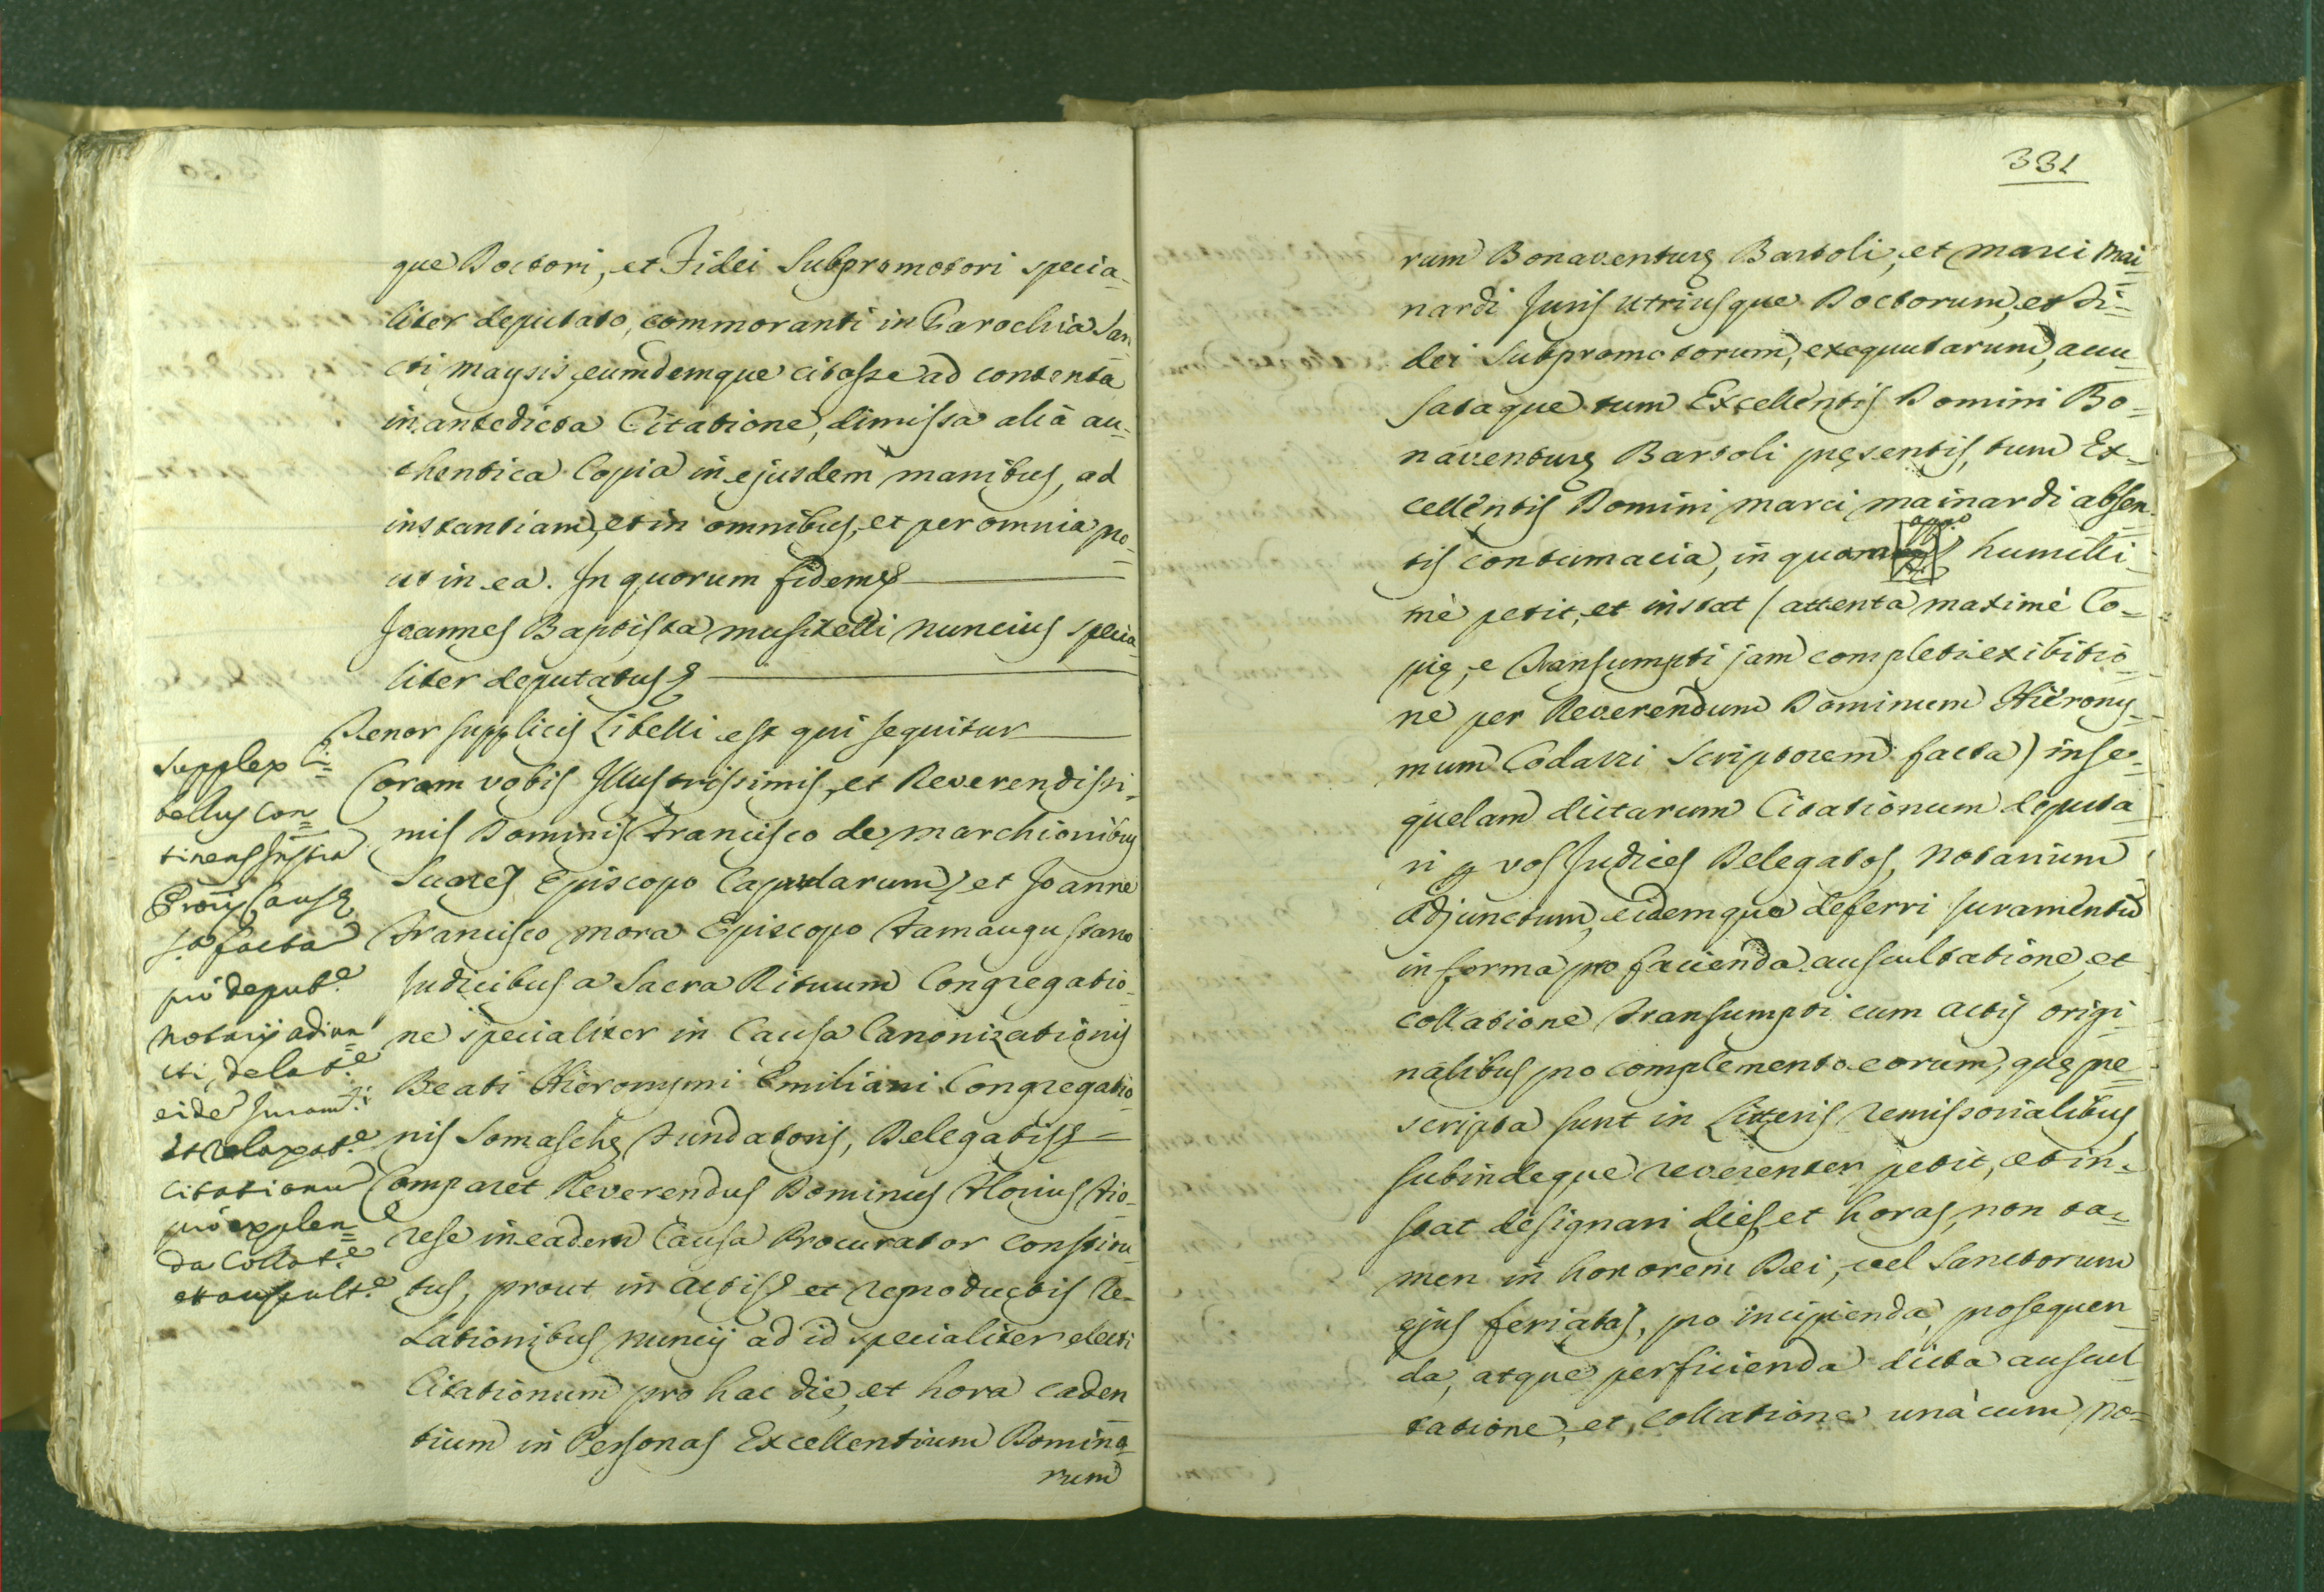 que Doctori, et Fidei Subpromotori specia-
liter deputato, commoranti in Parochia San
cti Moysis, eumdemque citasse ad contenta
in antedicta Citatione, dimissa alia au-
thentica Copia in ejusdem manibus, ad
instantiam, et in omnibus, et per omnia pro-
ut in ea. In quorum fidem &
Joannes Baptista Musitelli Nuncius specia
liter deputatus &
Tenor supplicis Libelli est qui sequitur
Supplex Li=
bellus Con=
tinens Inst.
Proris Causę
facta
pro deput.e
Notarij adiun=
cti, delat.e
eidē Juram.ti
et relaxat.e
citationū
pro explen=
da Collat.e
et auscult.e
Coram vobis Illustrissimis, et Reverendissi-
mis Dominis Francisco de Marchionibus
Suares Episcopo Capularum, et Joanne
Francisco Mora Episcopo Famaugustano
Judicibus a Sacra Rituum Congregatio-
ne specialiter in Causa Canonizationis
Beati Hieronymi Emiliani Congregatio-
nis Somaschę Fundatoris, Delegatis &=
Comparet Reverendus Dominus Florius Fio-
rese in eadem Causa Procurator constitu
tus, prout in Actis & et reproductis Re-
lationibus Nuncij ad id specialiter electi
Citationum pro hac die, et hora caden
tium in Personas Excellentium Domino-
rum
331
rum Bonaventurę Bartoli, et Marci Mai=
nardi Juris Utriusque Doctorum, et Fi=
dei Subpromotorum, exequutarum, accu-
sataque tum Excellentis Domini Bo-
naventurę Bartoli pręsentis, tum Ex-
cellentis Domini Marci Mainardi absen-
tis contumacia, in quorum humilli-
mè petit, et instat (attenta maximè Co-
pię, e Transumpti jam completi exibitio-
ne per Reverendum Dominum Hierony-
mum Codazzi Scriptorem facta) in se-
quelam dictarum Citationum deputa
ri ꝑ vos Judices Delegatos, Notarium
Adjunctum, eidemque deferri juramentū
in forma pro facienda auscultatione, et
collatione Transumpti cum Actis origi
nalibus pro complemento eorum, quę prę
scripta sunt in Litteris remissorialibus
subindeque reverenter petit, et in-
stat designari dies, et horas, non ta-
men in honorem Dei, vel Sanctorum
ejus feriatas, pro incipienda, prosequen
da, atque perficienda dicta auscul
tatione, et collatione unà cum No=